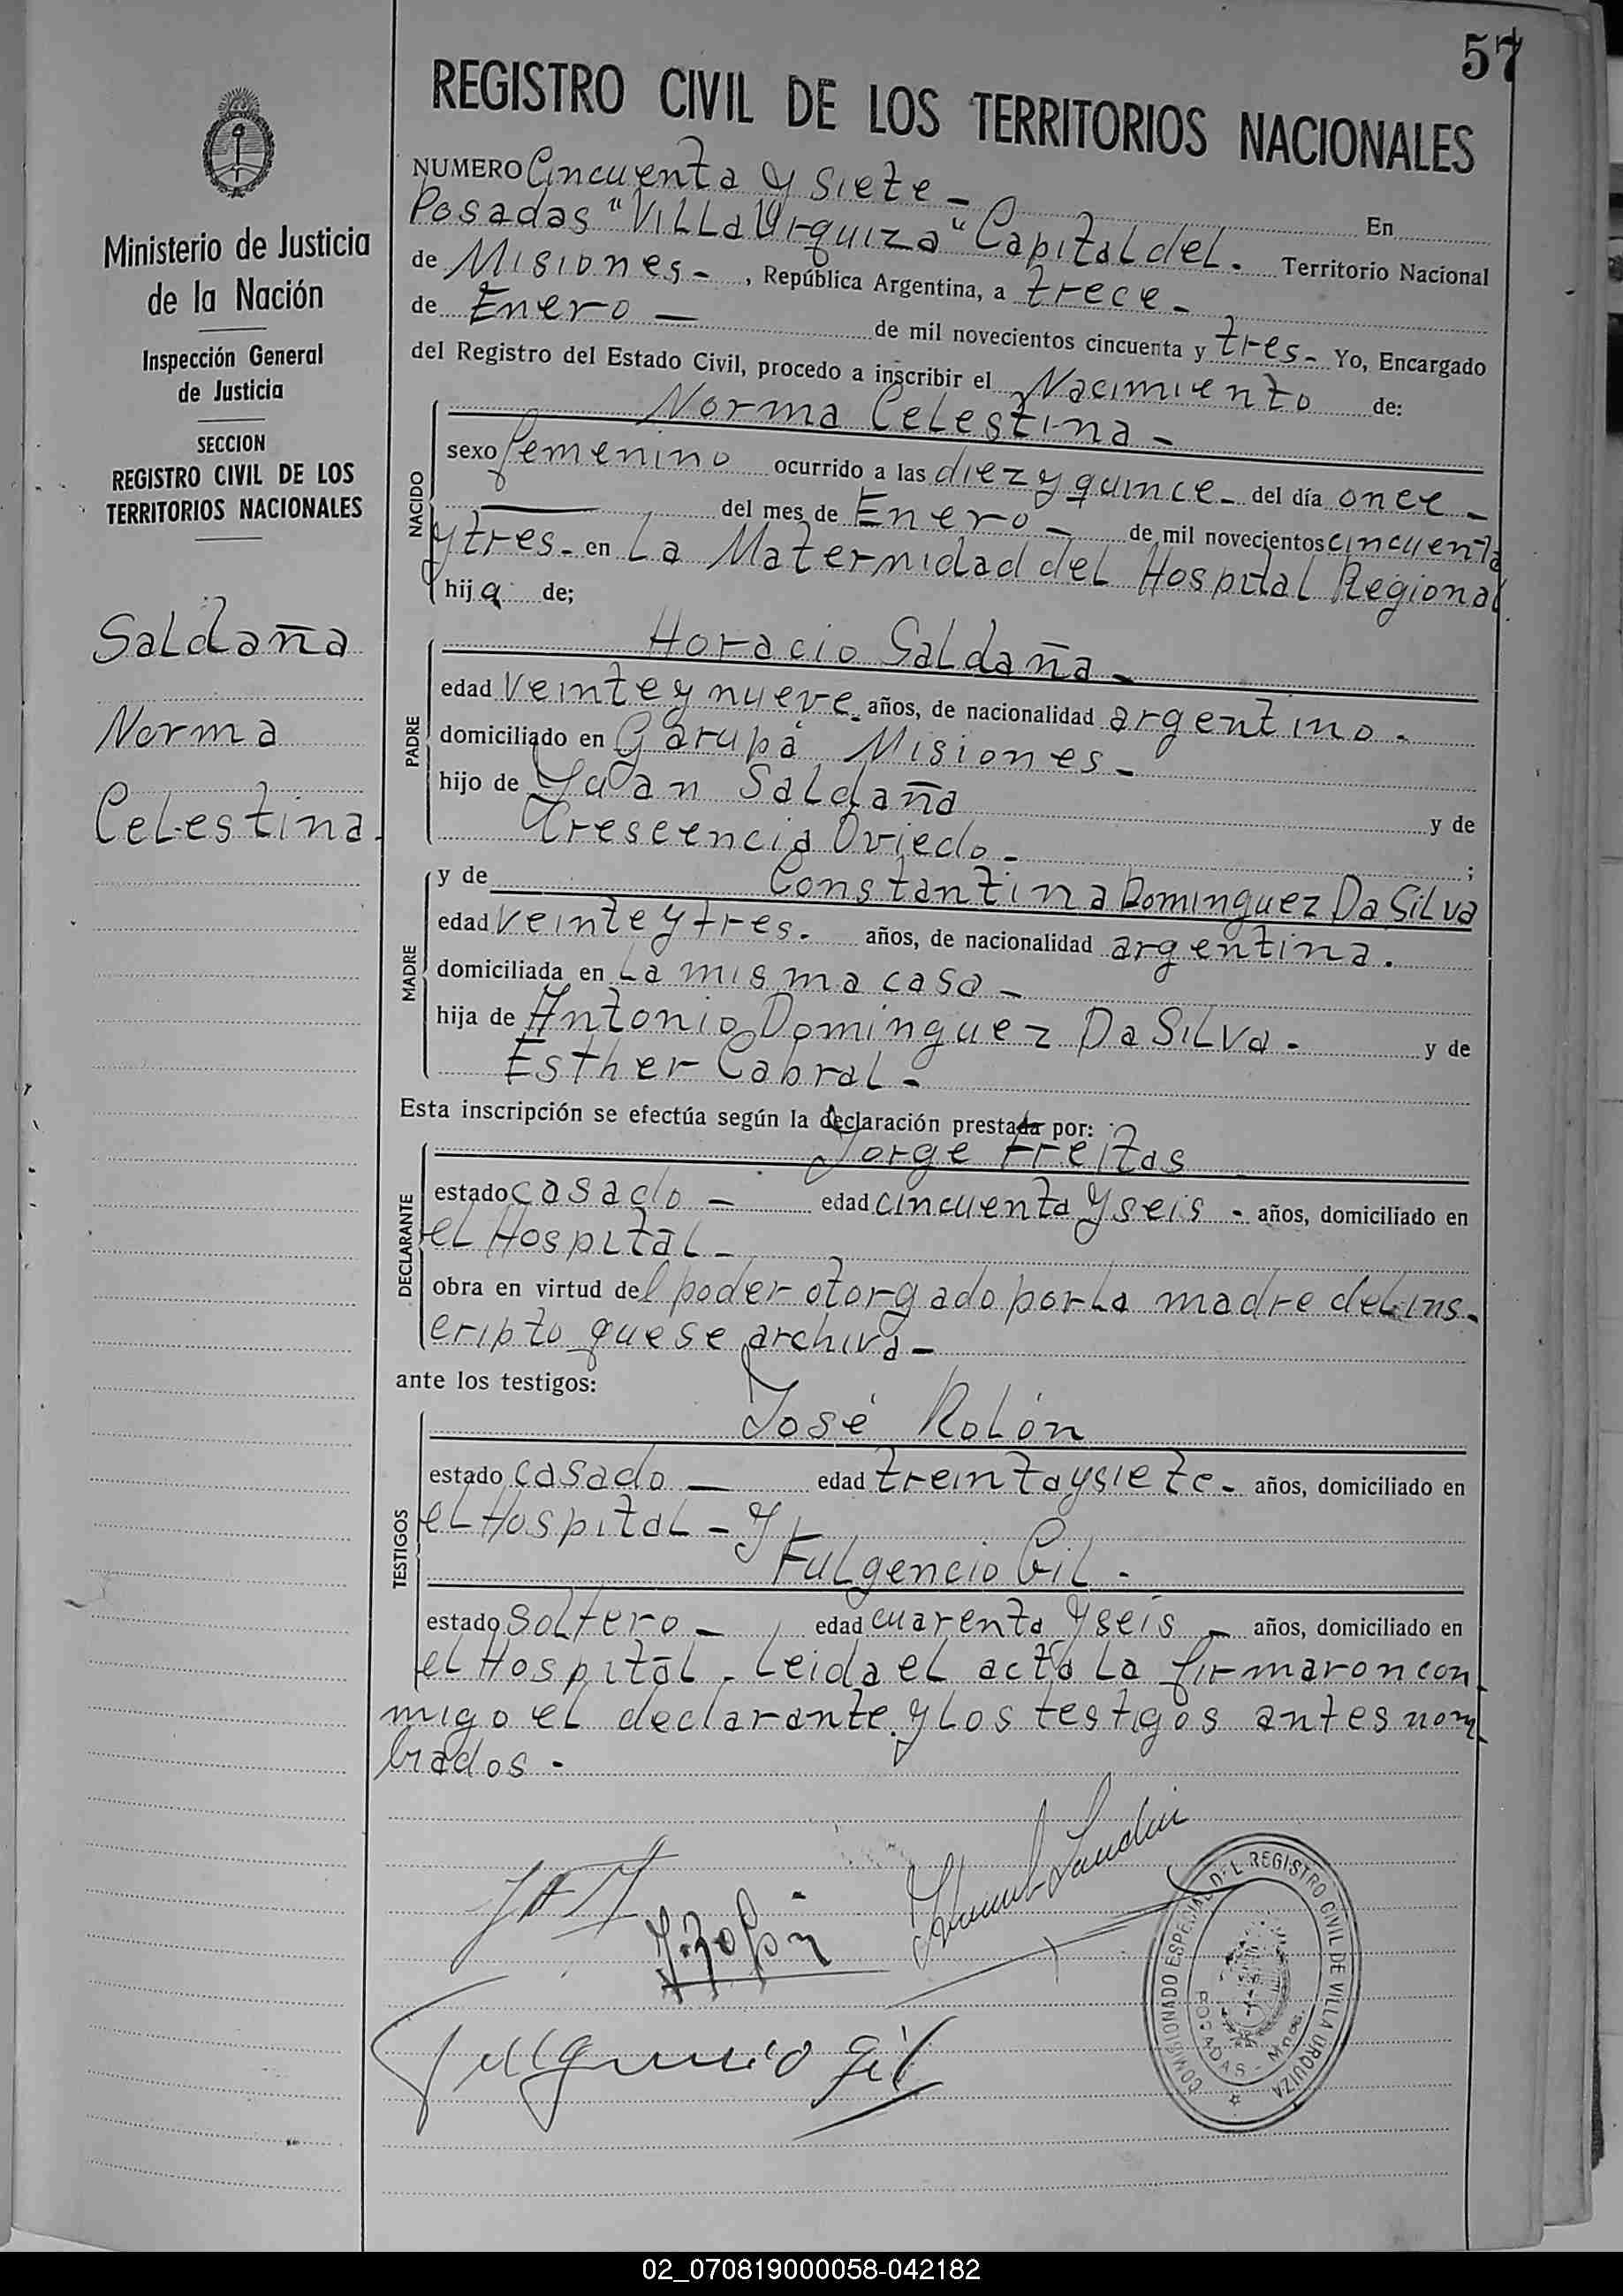 57
REGISTRO CIVIL DE LOS TERRITORIOS NACIONALES
Ministerio de Justicia
de la Nación
Inspección General
de Justicia
SECCION
REGISTRO CIVIL DE LOS
TERRITORIOS NACIONALES
Saldaña
Norma
Celestina.
NUMERO Cincuenta y siete - En
Posadas "Villa Urquiza" Capital del. Territorio Nacional
de Misiones - , República Argentina, a trece -
de Enero — de mil novecientos cincuenta y tres - Yo, Encargado
del Registro del Estado Civil, procedo a inscribir el Nacimiento de:
NACIDO
Norma Celestina -
sexo femenino ocurrido a las diez y quince - del día once -
— del mes de Enero - de mil novecientos cincuenta
y tres - en La Maternidad del Hospital Regional
hija de;
PADRE
Horacio Saldaña -
edad veinte y nueve - años, de nacionalidad argentino -
domiciliado en Garupá Misiones -
hijo de Juan Saldaña y de
Crescencia Oviedo - ;
MADRE
y de Constantina Dominguez Da Silva
edad veinte y tres - años, de nacionalidad argentina.
domiciliada en La misma casa -
hija de Antonio Dominguez Da Silva - y de
Esther Cabral -
Esta inscripción se efectúa según la declaración prestada por:
DECLARANTE
Jorge Freitas
estado casado - edad cincuenta y seis - años, domiciliado en
el Hospital -
obra en virtud del poder otorgado por La madre del ins-
cripto que se archiva -
ante los testigos:
TESTIGOS
José Rolón
estado casado — edad treinta y siete - años, domiciliado en
el Hospital - y
Fulgencio Gil -
estado soltero - edad cuarenta y seis - años, domiciliado en
el Hospital - Leida el acta La firmaron con
migo el declarante y Los testigos antes nom
brados -
J. Rolón
Fulgencio Gil
COMISIONADO ESPECIAL DEL REGISTRO CIVIL DE VILLA URQUIZA
POSADAS - Mnes.
02_070819000058-042182